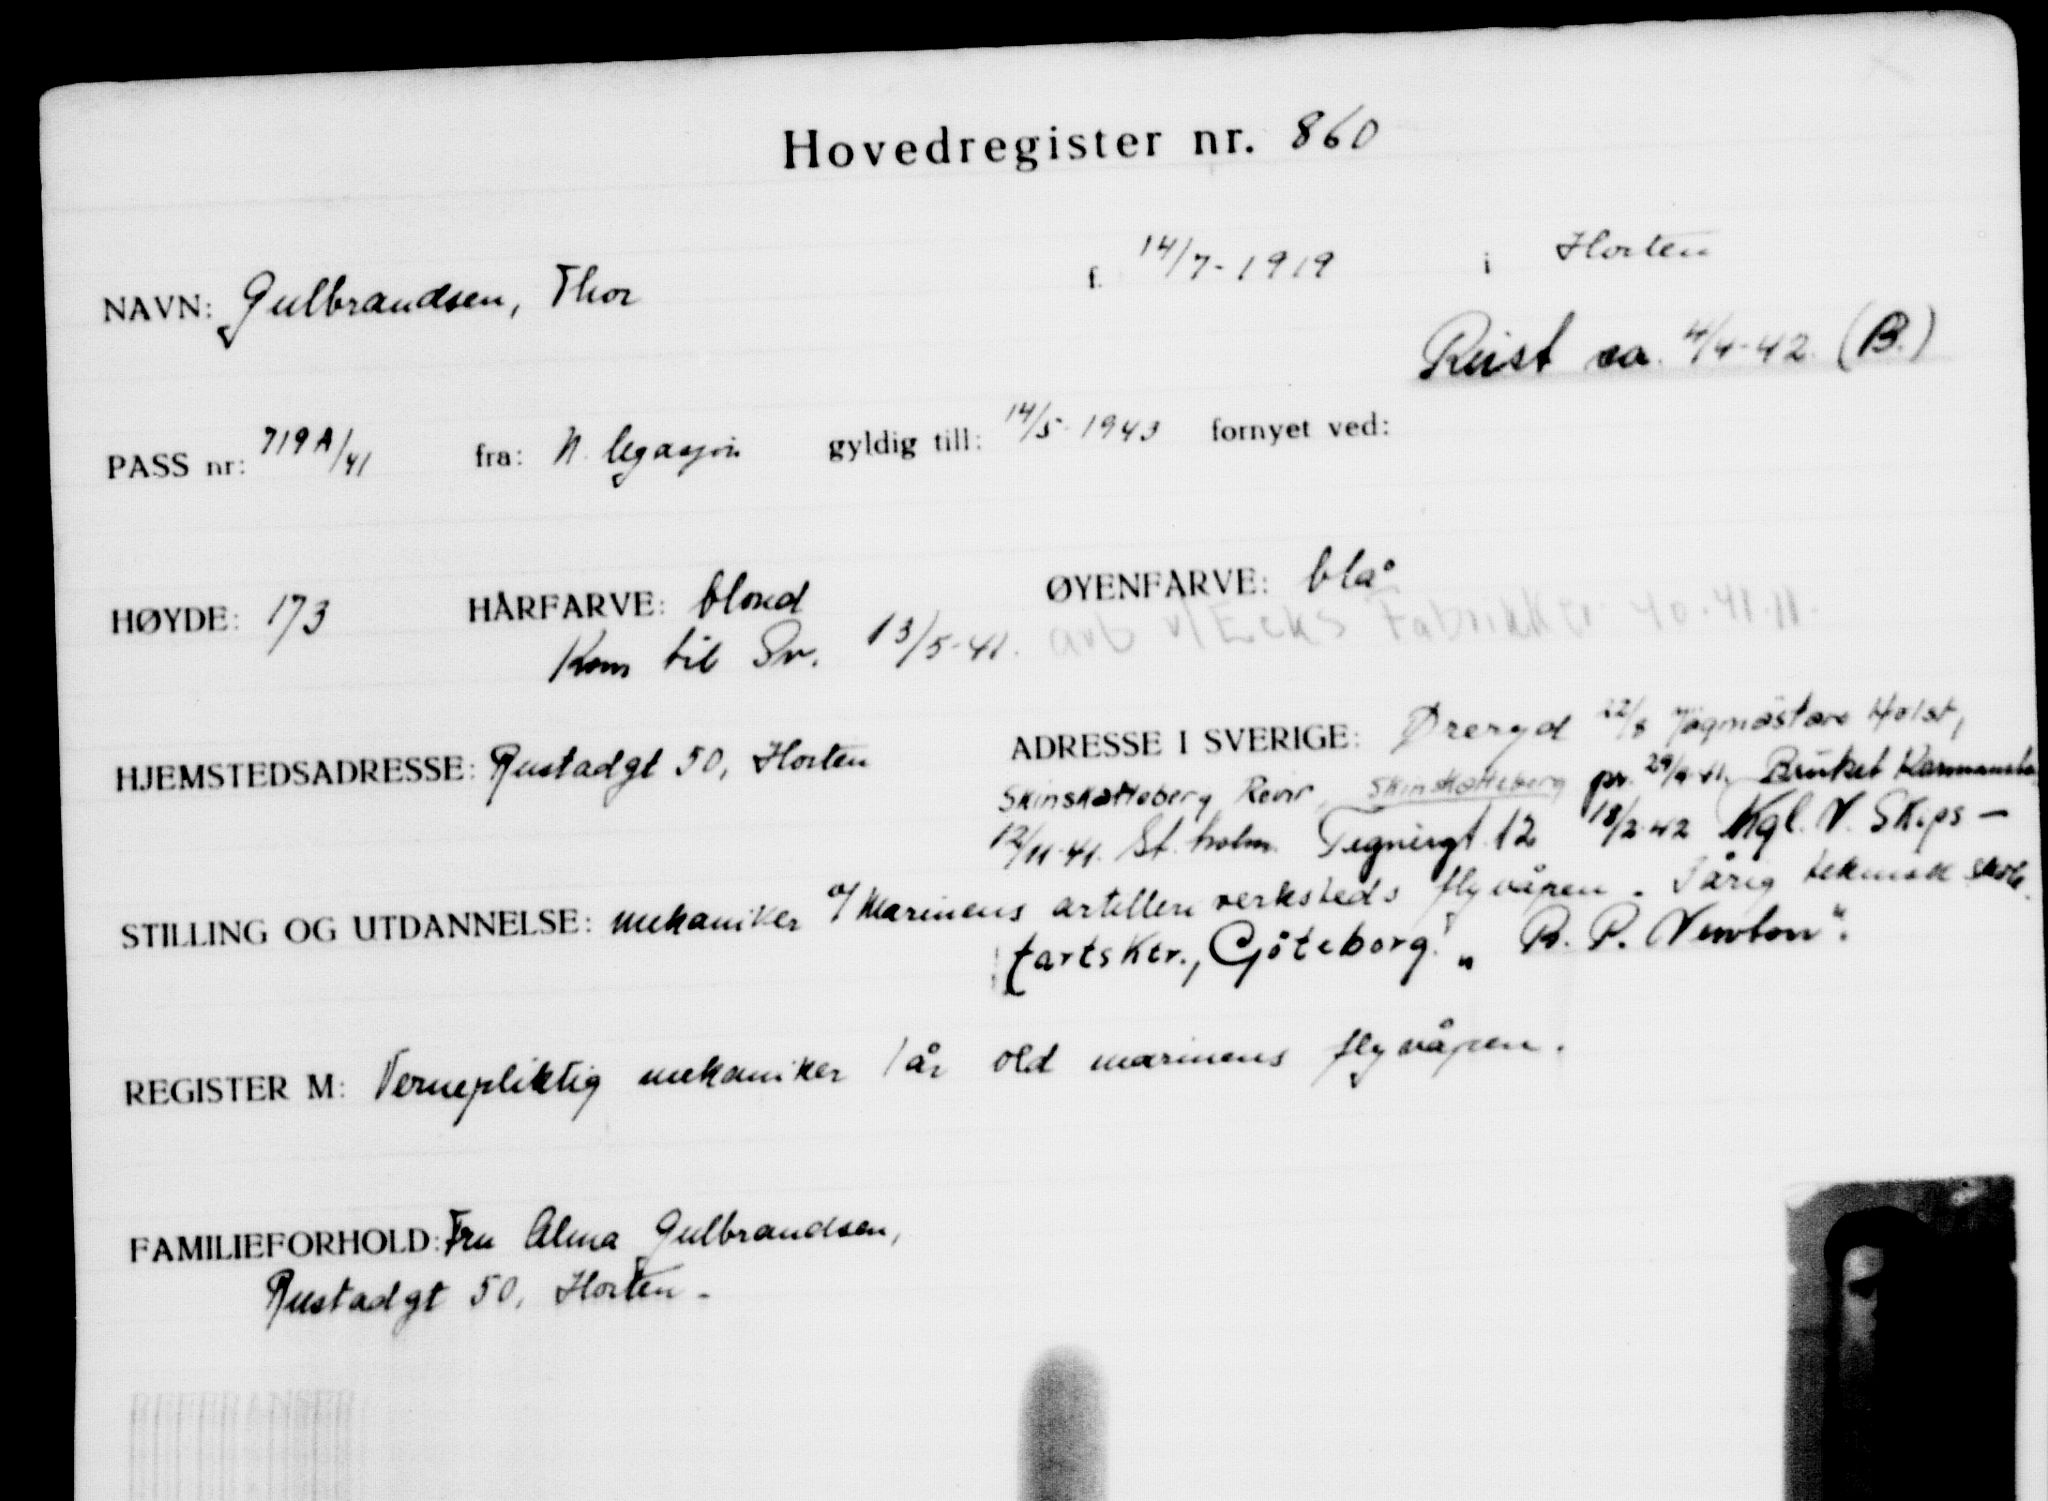 Hovedregister nr. 860
NAVN: Gulbrandsen, Thor f. 14/7-1919 i Horten
Reist ca. 4/4-42. (B.)
PASS nr: 719A/41 fra: N. legasjon gyldig till: 14/5-1943 fornyet ved:
HØYDE: 173 HÅRFARVE: blond ØYENFARVE: blå
Kom til Sv. 13/5-41. arb v/ Ecks Fabrikker 40-41.
HJEMSTEDSADRESSE: Rustadgt 50, Horten ADRESSE I SVERIGE: Øreryd 22/8 Jägmästare Holst,
Skinskatteberg Revir, Skinskatteberg pr. 29/9-41. Bruket
12/11-41. St.holm. Tegnérgt. 12 18/2-42 Kgl. N. Skips-
STILLING OG UTDANNELSE: mekaniker v/ Marinens artilleriverksteds flyvåpen. årig teknisk skole.
fartsktr., Göteborg. "B. P. Newton".
REGISTER M: Vernepliktig mekaniker 1 år ved marinens flyvåpen.
FAMILIEFORHOLD: Fru Alma Gulbrandsen,
Rustadgt 50, Horten.
REFERANSER